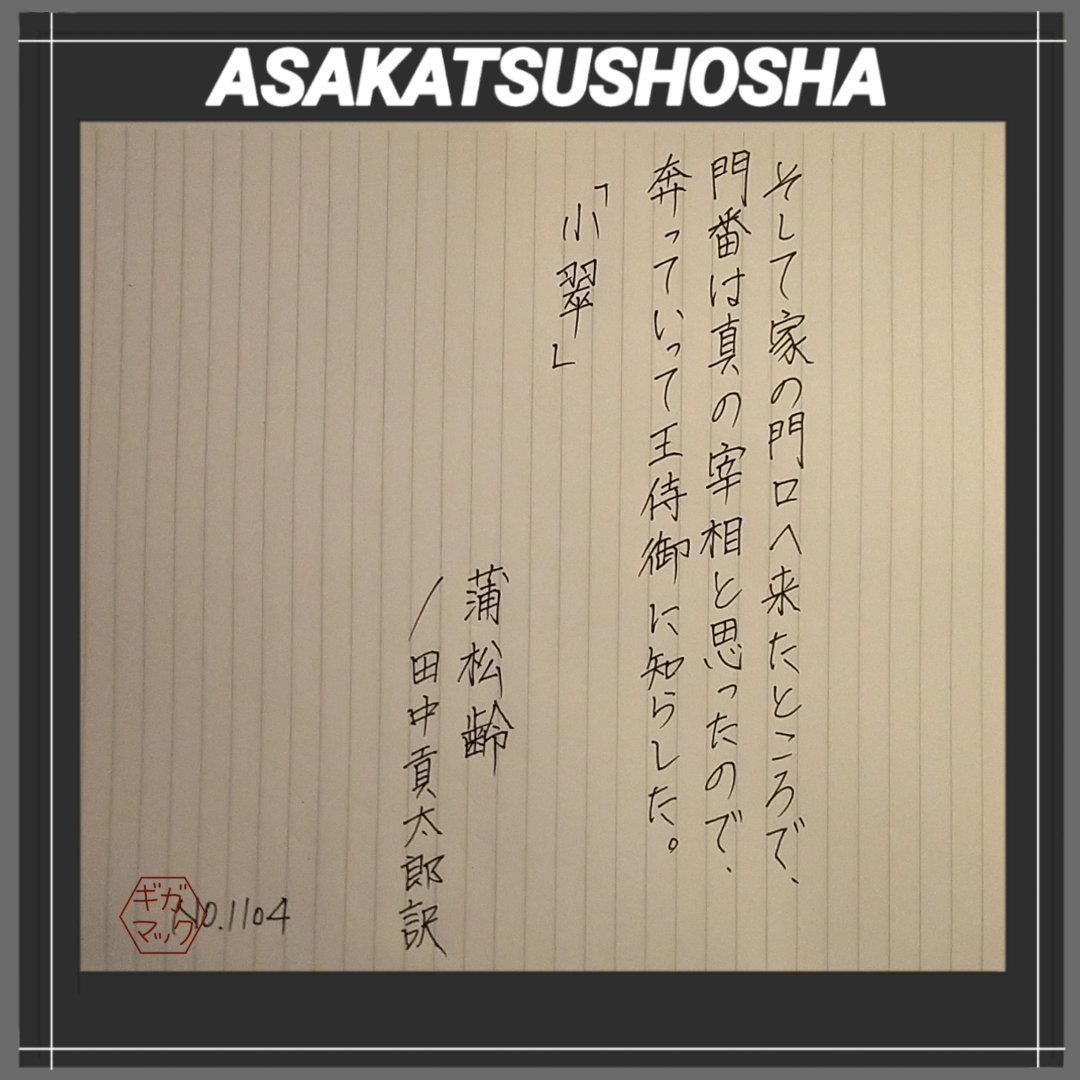 ASAKATSUSHOSHA
そして家の門口へ来たところで、
門番は真の宰相と思ったので、
奔っていって王侍御に知らした。
「小翠」
蒲松齢
/田中貢太郎訳
ギガ
マック
NO.1104